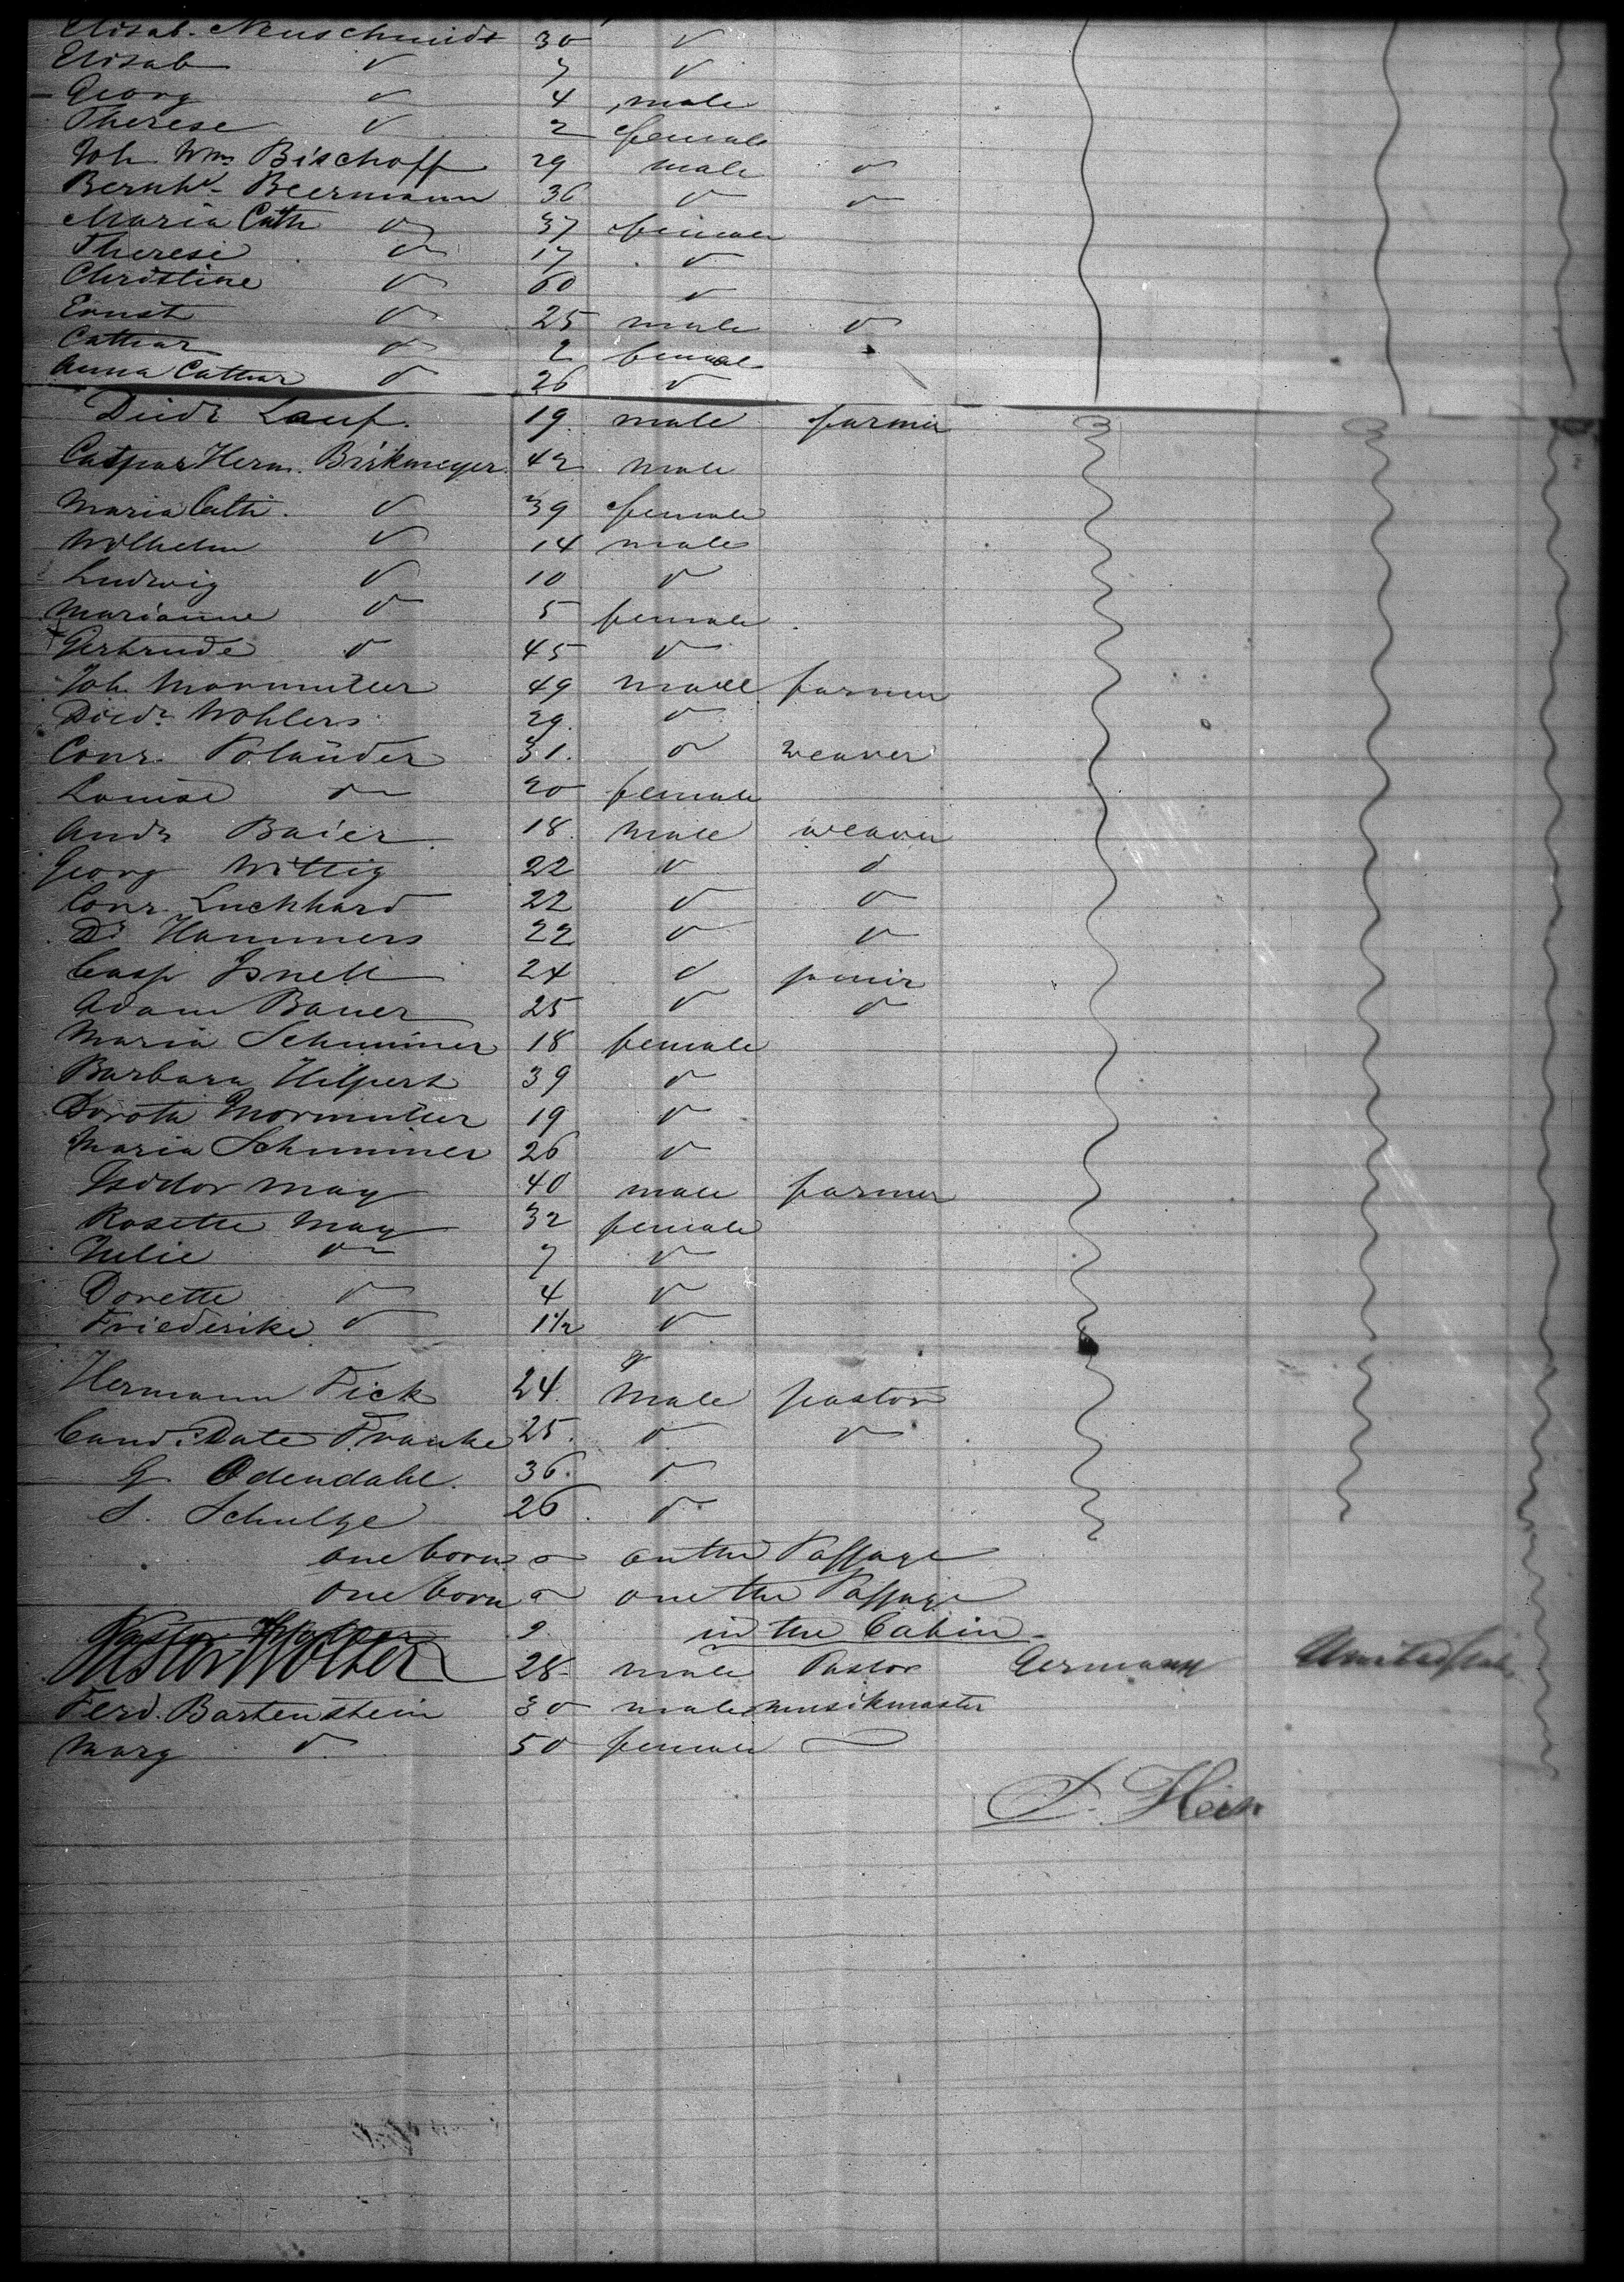 Elisab. Neuschmidt 30 "
Elisab " 7 "
Georg " 4 male
Therese " 2 female
Joh Wm Bischoff 29 male "
Bernhd Beermann 36 " "
Maria Cath " 37 female
Therese " 17 "
Christine " 60 "
Ernst " 25 male "
Cathar " 2 female
Anna Cathar " 26 "
Diedr Lauf. 19. male farmer
Caspar Herm. Birkmeyer. 42 male
Maria Cath. " 39 female
Wilhelm " 14 male
Ludwig " 10 "
Marianne " 5 female
Gertrude " 45 "
Joh. Mormuller 49 male farmer
Diedr Wohlers 29. "
Conr. Poländer 31. " weaver
Louise " 20 female
Andr Baier. 18. male weaver
Georg Wittig 22 " "
Conr. Luckhard 22 " "
Dr Hammers 22 " "
Casp 24 "
Adam Bauer 25 " "
Maria Schminner 18 female
Barbara Hilpert 39 "
Doroth Mormuller 19 "
Maria Schminner 26 "
Isidor May 40 male farmer
Rosette May 32 female
Julie " 7 "
Dorette " 4 "
Friederike " 1½ "
Hermann Fick 24. male pastor
Cand. Date Franke 25. " "
G Odendahl. 36. "
S. Schulze 26. "
one born " on the Passage
one born " one the Passage
in the Cabin
Pastor Wolter 28 male Pastor Germany United States
Ferd. Bartenstein 30 male musikmaster
Marg " 50 female
D. Hein